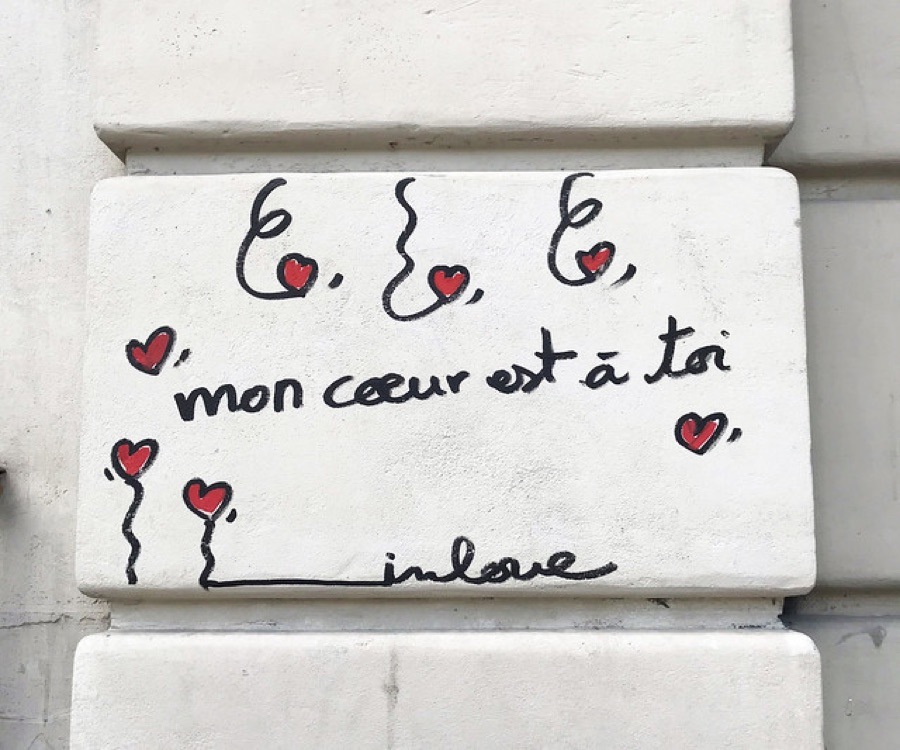 mon cœur est à toi
inlove